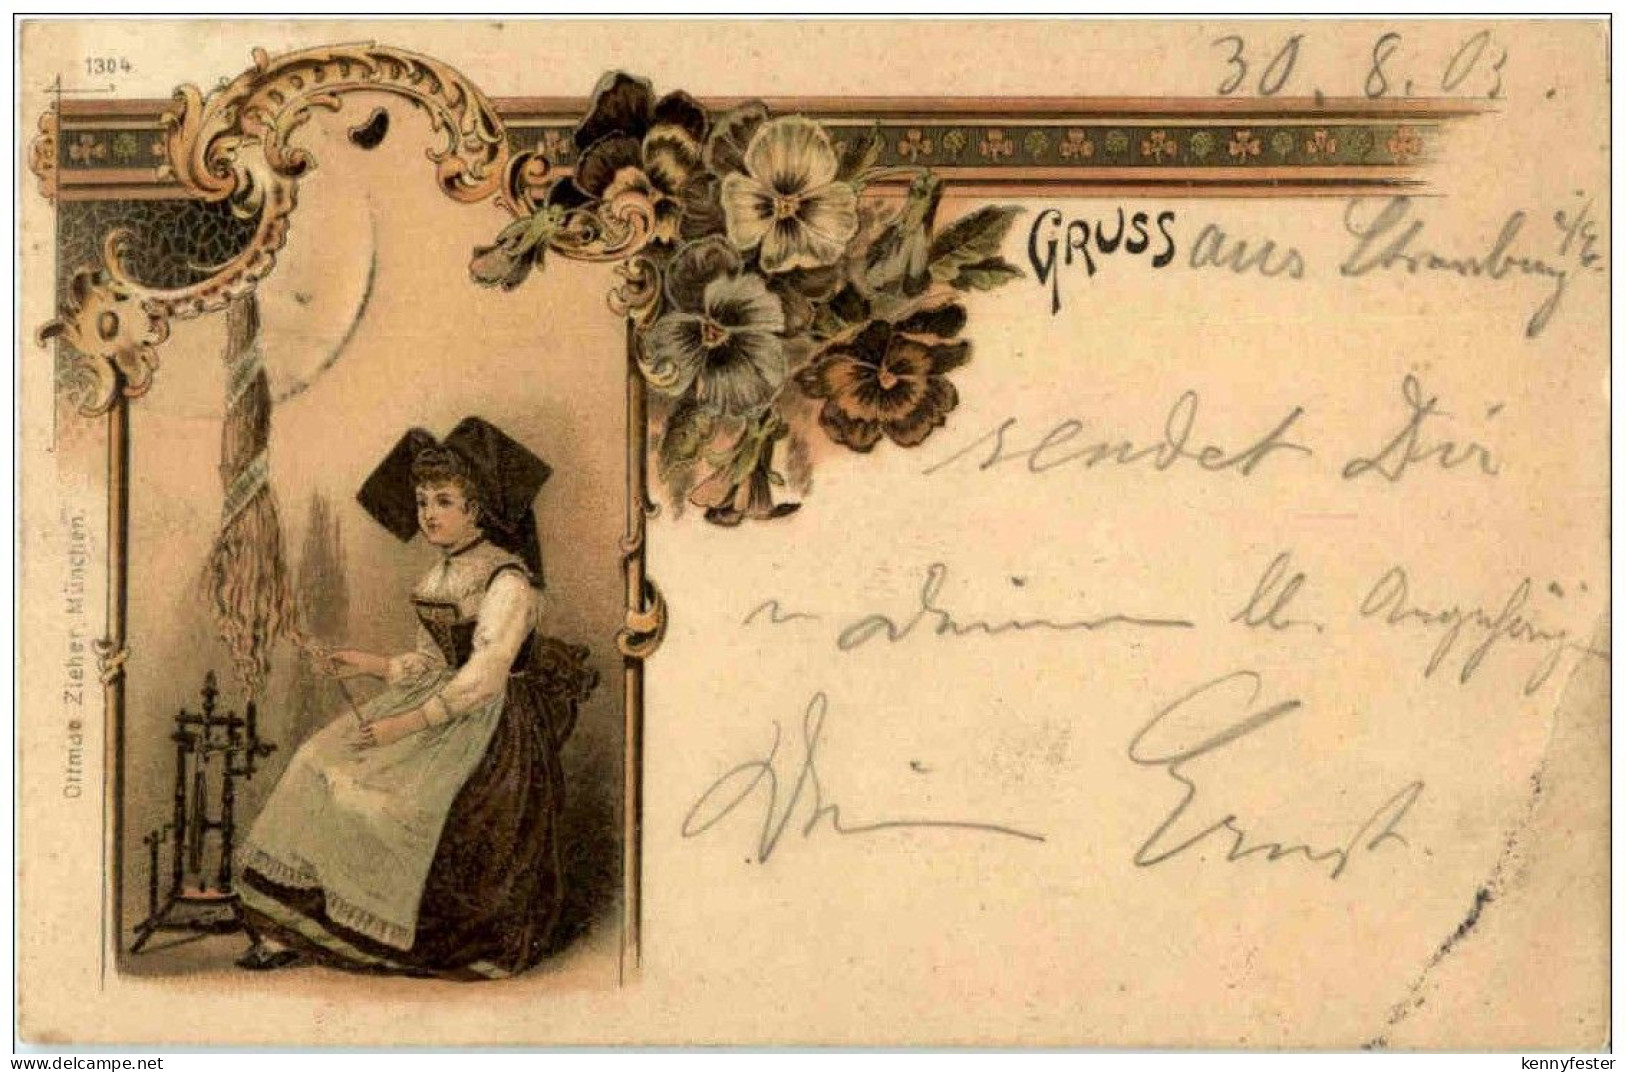 1304
30. 8. 03.
GRUSS aus Strassburg i/E.
sendet Dir
u deinen ll. Angehörig
Dein Ernst.
Ottmar Zieher, München.
delcampe.net
kennyfester